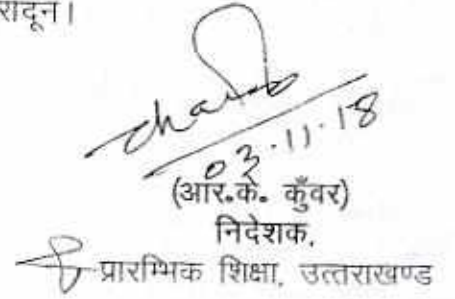 रादून।
03.11.18
(आर.के. कुँवर)
निदेशक,
प्रारम्भिक शिक्षा, उत्तराखण्ड